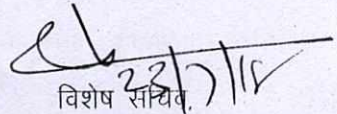 23/7/18
विशेष सचिव,